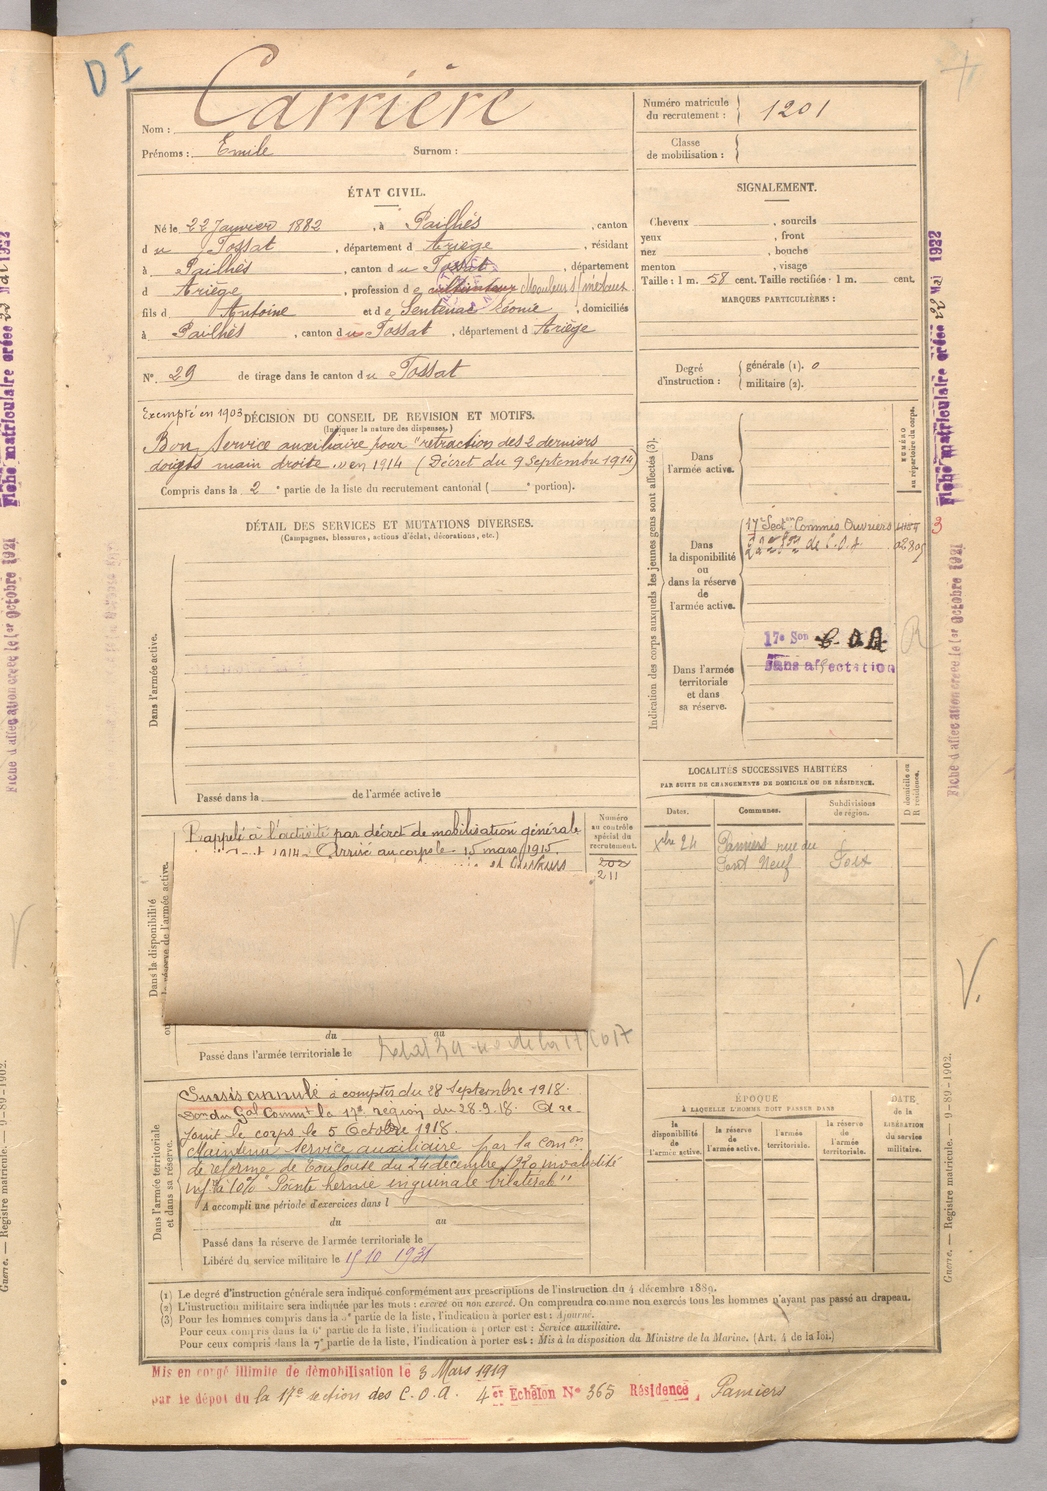 D I
Carrière
Nom :
Prénoms : Emile Surnom :
Numéro matricule du recrutement : 1201
Classe de mobilisation :
ÉTAT CIVIL.
Né le 22 Janvier 1882, à Pailhés, canton
du Fossat, département d Ariège, résidant
à Pailhés, canton du Fossat, département
d Ariège, profession de cultivateur Mouleur s/ métaux
fils d Antoine et de Sentenac Léonie, domiciliés
à Pailhés, canton du Fossat, département d Ariège
N° 29 de tirage dans le canton du Fossat
SIGNALEMENT.
Cheveux , sourcils
yeux , front
nez , bouche
menton , visage
Taille : 1 m. 58 cent. Taille rectifiée : 1 m. cent.
MARQUES PARTICULIÈRES :
Degré d'instruction : générale (1). 0
militaire (2).
Exempté en 1903 DÉCISION DU CONSEIL DE REVISION ET MOTIFS.
(Indiquer la nature des dispenses.)
Bon Service auxiliaire pour "retraction des 2 derniers
doigts main droite" en 1914 (Décret du 9 Septembre 1914)
Compris dans la 2e partie de la liste du recrutement cantonal ( e portion).
DÉTAIL DES SERVICES ET MUTATIONS DIVERSES.
(Campagnes, blessures, actions d'éclat, décorations, etc.)
Dans l'armée active.
Passé dans la de l'armée active le
Indication des corps auxquels les jeunes gens sont affectés (3).
NUMÉRO au répertoire du corps.
Dans l'armée active.
Dans la disponibilité ou dans la réserve de l'armée active.
17e Secton Commis Ouvriers
de C.O.A
Dans l'armée territoriale et dans sa réserve.
17e Son C.O.A
Sans affectation
LOCALITÉS SUCCESSIVES HABITÉES
PAR SUITE DE CHANGEMENTS DE DOMICILE OU DE RÉSIDENCE.
Dates. Communes. Subdivisions de région. D domicile ou R résidence.
Xbre 24 Pamiers rue du Foix
Pont Neuf
Dans la disponibilité
Rappelé à l'activité par décret de mobilisation générale
1914. Arrivé au corps le 15 mars 1915.
Numéro au contrôle spécial du recrutement.
202
211
du au
Passé dans l'armée territoriale le
Dans l'armée territoriale et dans sa réserve.
Sursis annulé à compter du 28 Septembre 1918.
Son du Gal Commt la 17e région du 28.9.18. A re-
joint le corps le 5 Octobre 1918.
Maintenu service auxiliaire par la Comon
de réforme de Toulouse du 24 décembre 1920 invalidité
infre à 10% "Pointe hernie inguinale bilatérale"
A accompli une période d'exercices dans l
du au
Passé dans la réserve de l'armée territoriale le
Libéré du service militaire le 15 10 1931
ÉPOQUE
À LAQUELLE L'HOMME DOIT PASSER DANS
la disponibilité de l'armée active. la réserve de l'armée active. l'armée territoriale. la réserve de l'armée territoriale.
DATE de la LIBÉRATION du service militaire.
(1) Le degré d'instruction générale sera indiqué conformément aux prescriptions de l'instruction du 4 décembre 1889.
(2) L'instruction militaire sera indiquée par les mots : exercé ou non exercé. On comprendra comme non exercés tous les hommes n'ayant pas passé au drapeau.
(3) Pour les hommes compris dans la 5e partie de la liste, l'indication à porter est : Ajourné.
Pour ceux compris dans la 6e partie de la liste, l'indication à porter est : Service auxiliaire.
Pour ceux compris dans la 7e partie de la liste, l'indication à porter est : Mis à la disposition du Ministre de la Marine. (Art. 4 de la loi.)
Mis en congé illimité de démobilisation le 3 Mars 1919
par le dépôt du la 17e section des C.O.A. 4er Echelon N° 365 Résidence, Pamiers
Fiche matriculaire créée 23 Mai 1922
Fiche d'affectation créée le 1er Octobre 1921
Guerre. — Registre matricule. — 9-89-1902.
V.